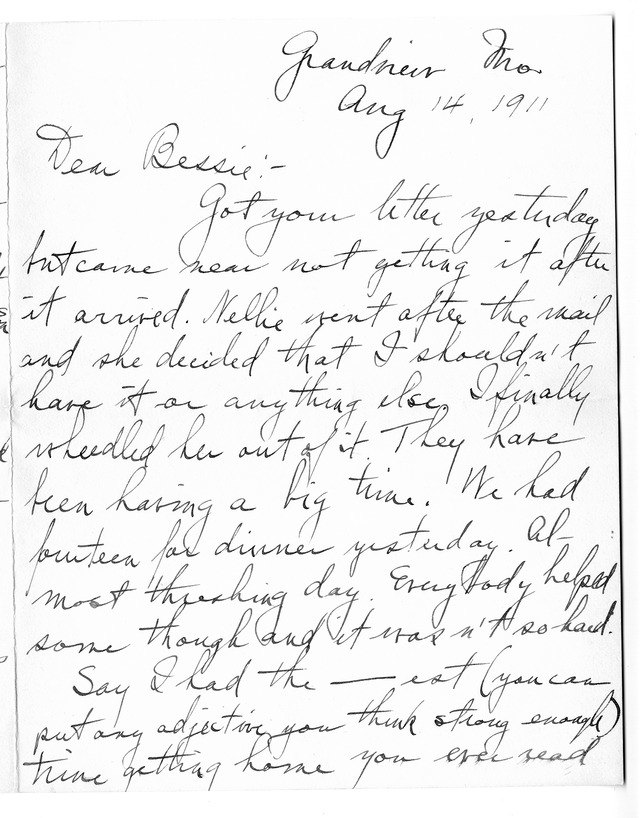 Grandview Mo.
Aug 14, 1911
Dear Bessie:-
Got your letter yesterday
but came near not getting it after
it arrived. Nellie went after the mail
and she decided that I shouldn't
have it or anything else. I finally
wheedled her out of it. They have
been having a big time. We had
fourteen for dinner yesterday. Al-
most threshing day. Everybody helped
some though and it wasn't so hard.
Say I had the —— est (you can
put any adjective you think strong enough)
time getting home you ever read